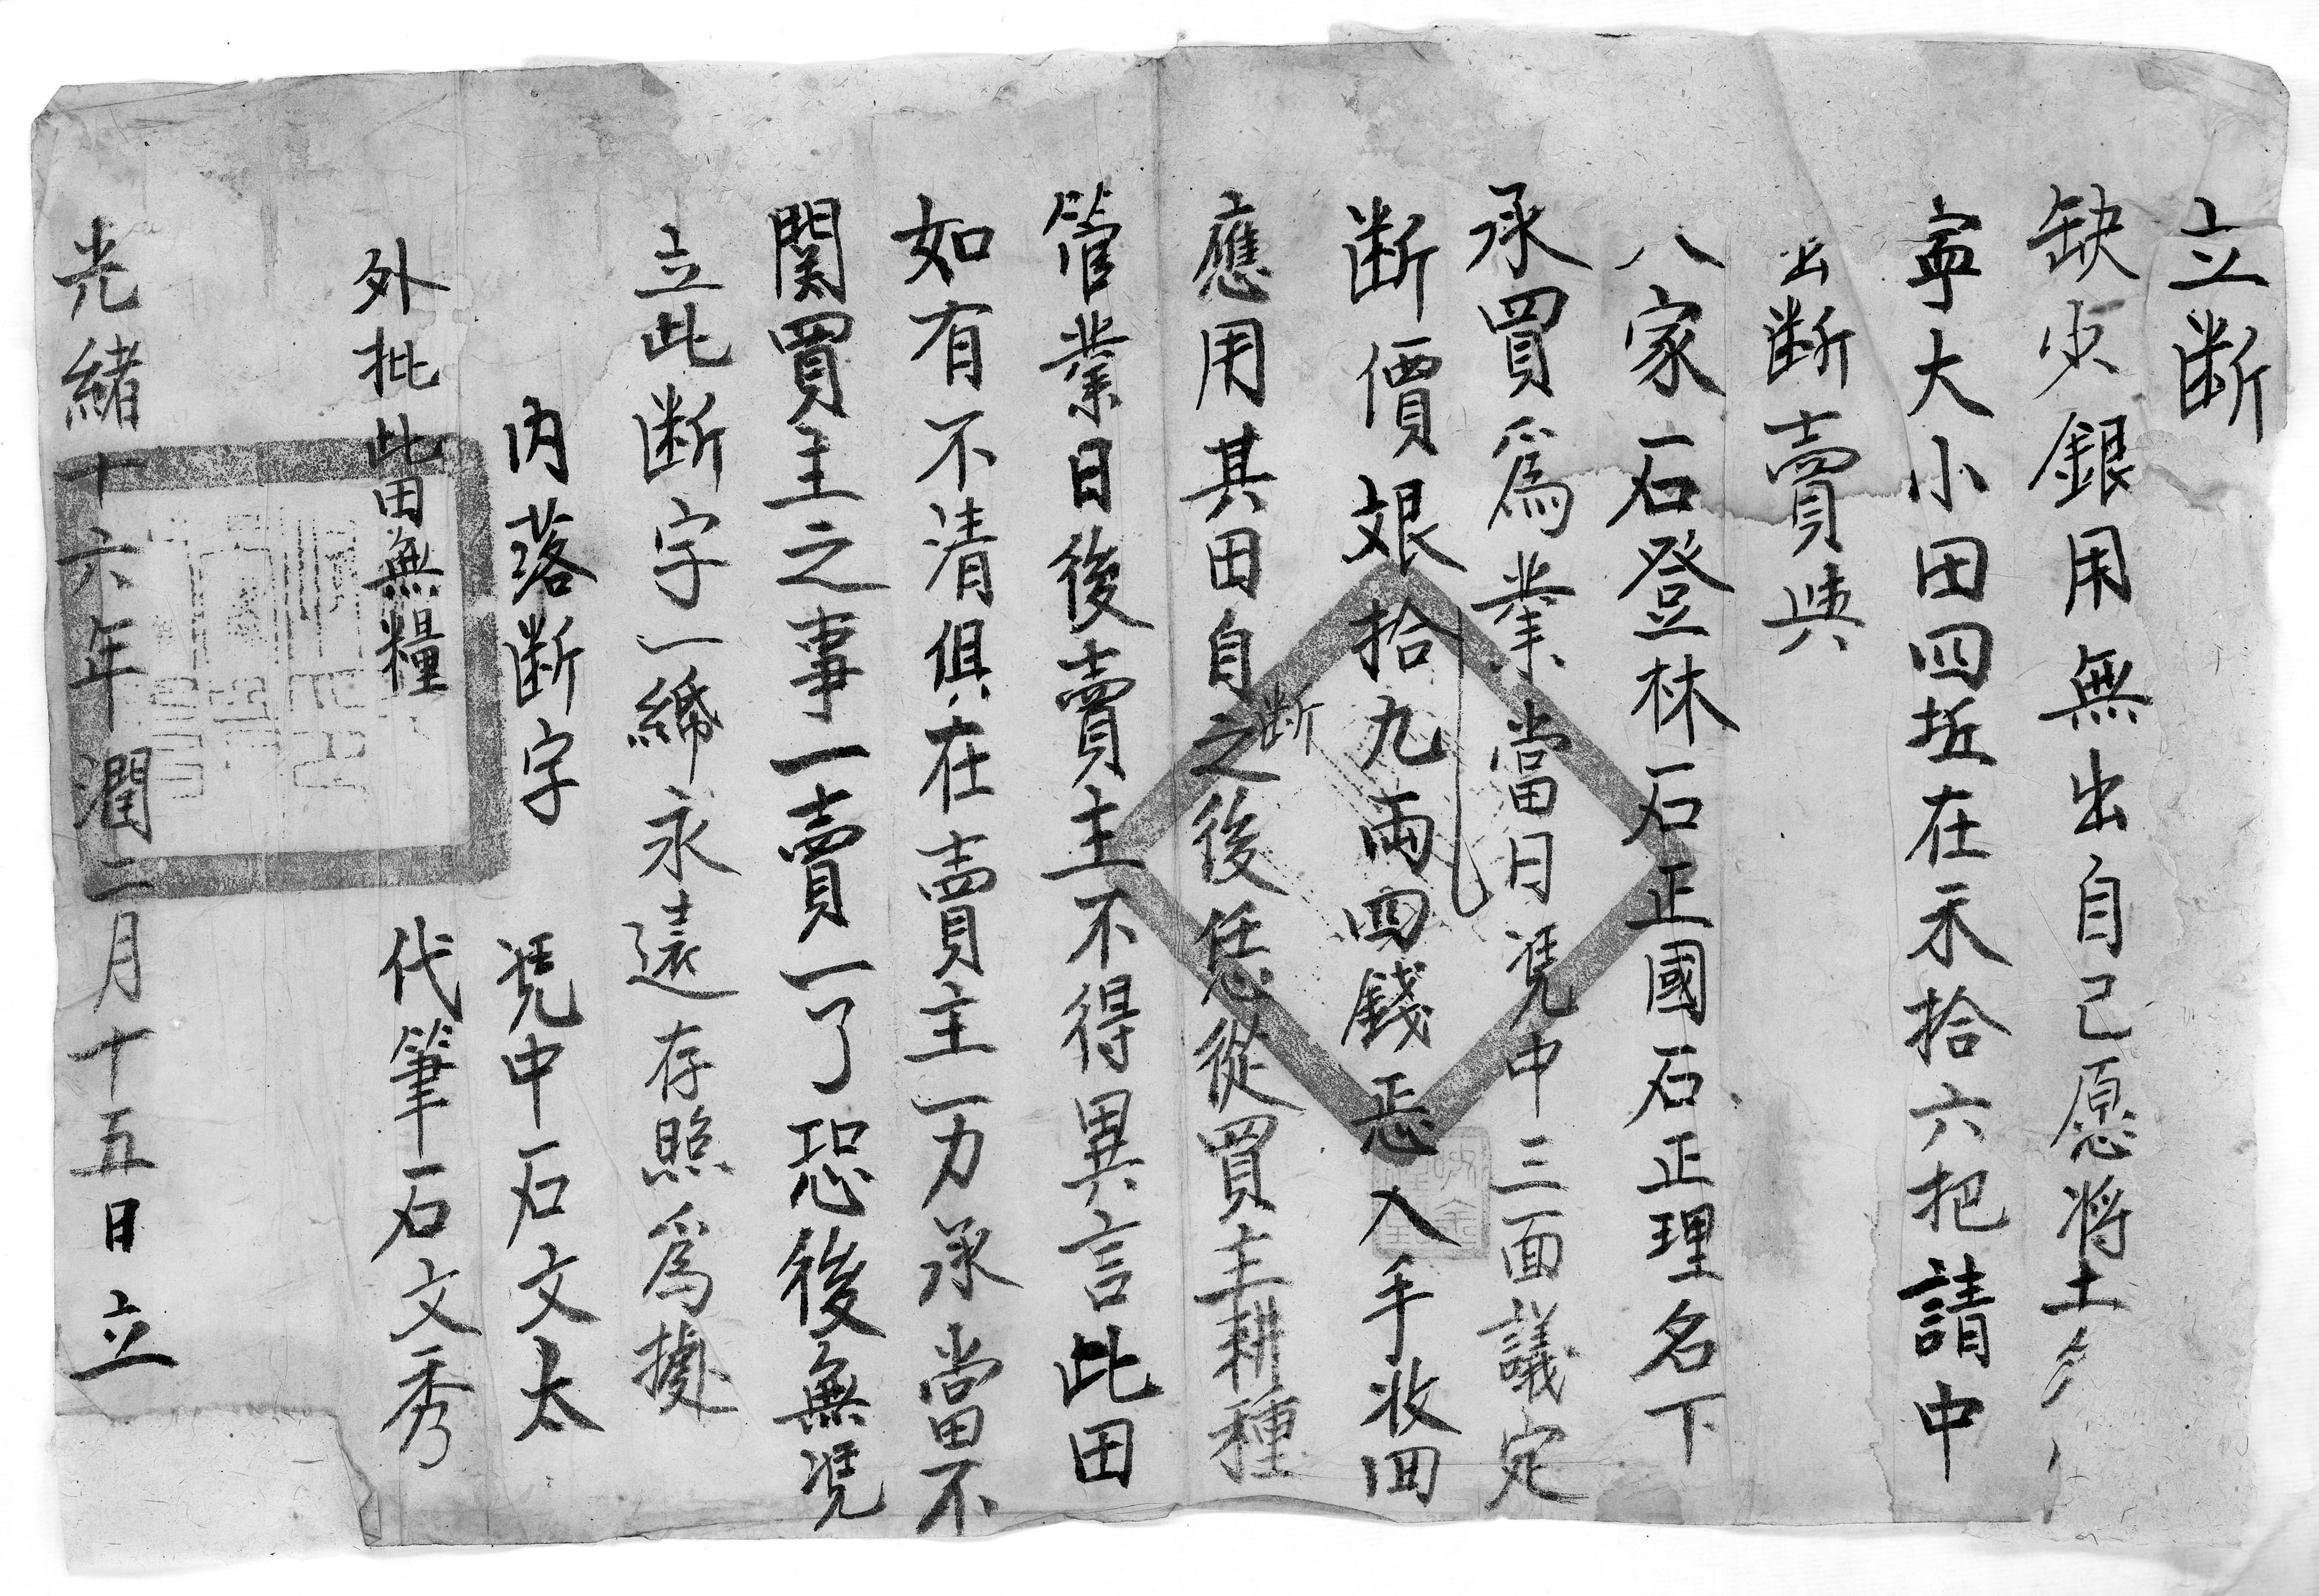 立断
缺少銀用無出自己愿將土
寧大小田四坵在禾拾六把請中
出断賣與
八家石登林石正國石正理名下
承買爲業當日凴中三面議定
断價艮拾九両四錢 入手收回
應用其田自断之後任從買主耕種
管業日後賣主不得異言此田
如有不清俱在賣主一力承當不
関買主之事一賣一了恐後無凴
立此断字一綿永遠存照爲據
内落断字 凴中石文太
外批此田無糧 代筆石文秀
光緒十六年潤二月十五日立